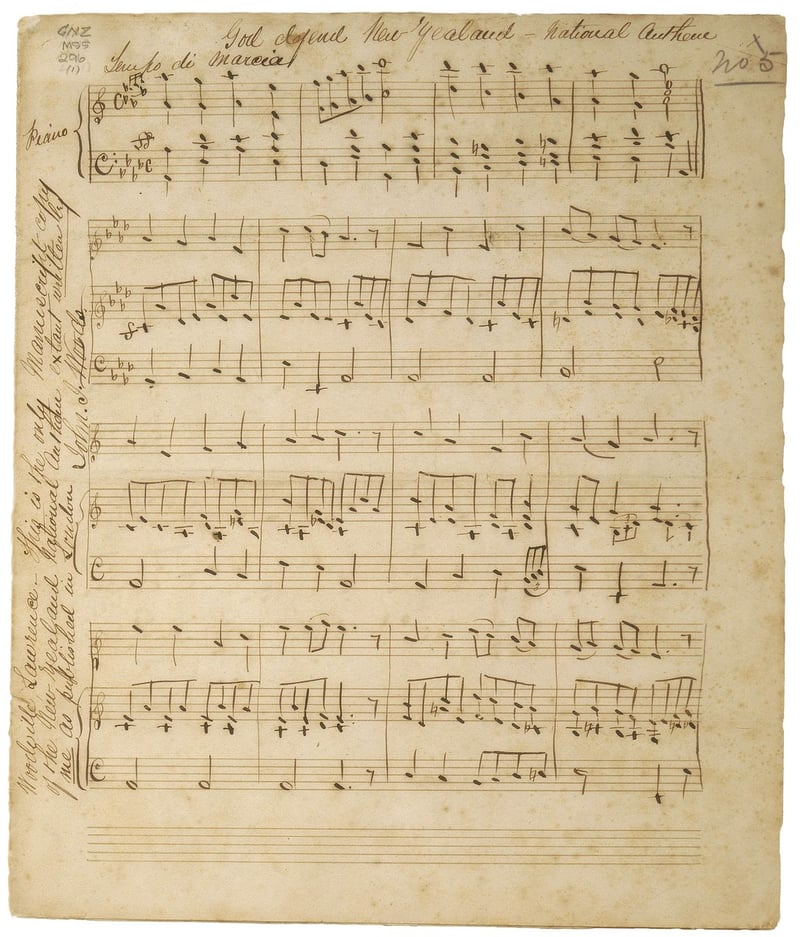 GNZ
MSS
296
(1)
God defend New Zealand - National Anthem
Tempo di Marcia
No 5
Piano
Woodville Lawrence - This is the only Manuscript copy
of the New Zealand National Anthem extant written by
me as published in London John J. Woods.